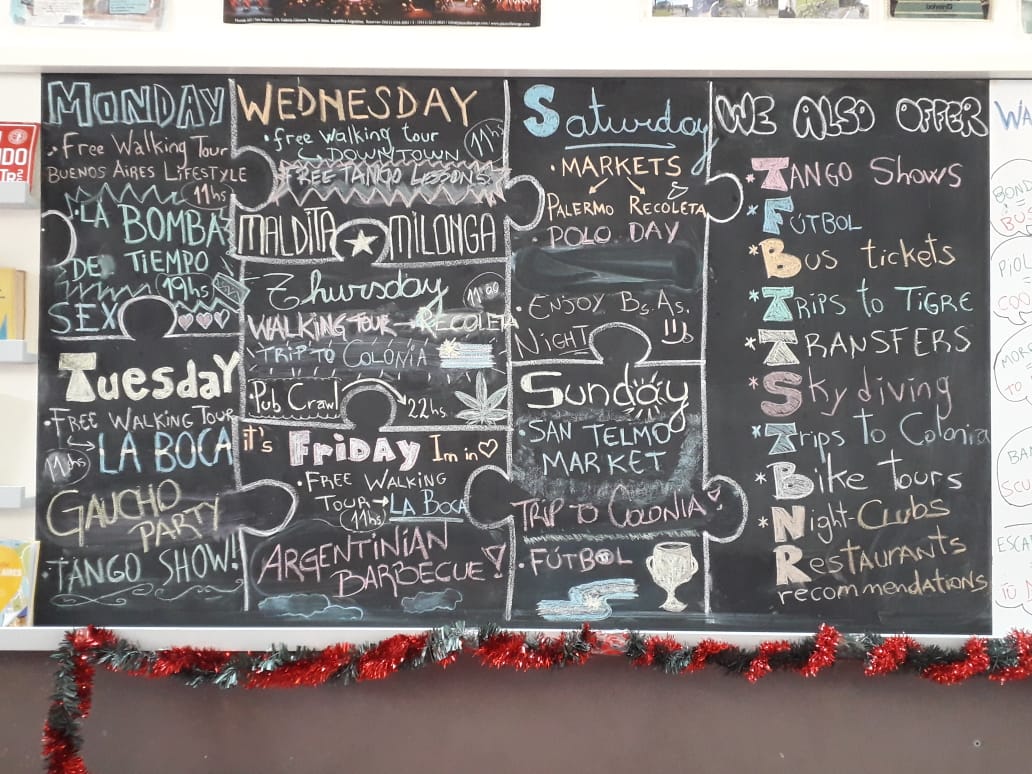 MONDAY
· Free Walking Tour
BUENOS AIRES LIFESTYLE
11hs
· LA BOMBA
DE TIEMPO
19hs
SEX
Tuesday
· FREE WALKING TOUR
11hs
→ LA BOCA
GAUCHO
PARTY
· TANGO SHOW!
WEDNESDAY
· free Walking tour
11hs
DOWNTOWN
FREE TANGO LESSONS
MALDITA ★ MILONGA
Thursday
11:00
WALKING TOUR → RECOLETA
· TRIP TO COLONIA
· Pub Crawl
22hs
it's FRiDAY Im in ♡
· FREE WALKING
TOUR → LA BOCA
11hs
ARGENTINIAN
BARBECUE!
Saturday
· MARKETS
PALERMO RECOLETA
· POLO DAY
· ENJOY Bs. As.
NIGHT
Sunday
· SAN TELMO
MARKET
TRIP TO COLONIA!
· FÚTBOL
WE ALSO OFFER
* TANGO Shows
* FÚTBOL
* Bus tickets
* TRIPS to TIGRE
* TRANSFERS
* Sky diving
* Trips to Colonia
* Bike tours
* Night-Clubs
* Restaurants
recommendations
WA
BOND
BU
PIOL
COO
MORO
TO
BAN
SCU
ESCA